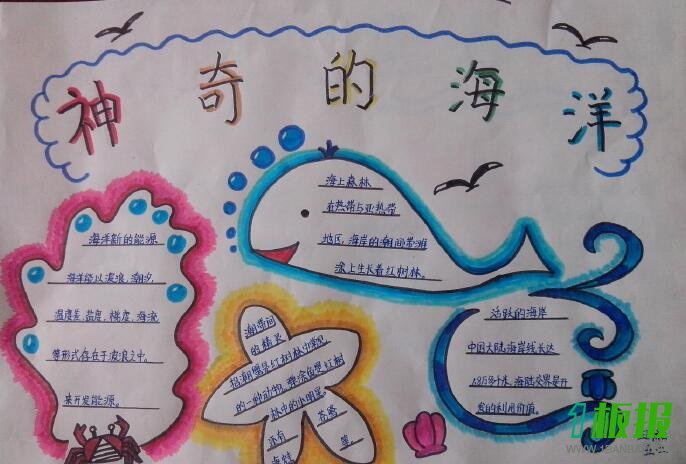 神奇的海洋
海洋新的能源
海洋能以波浪、潮汐、
温度差、盐度、梯度、海流
等形式存在于波浪之中。
来开发能源。
海上森林
在热带与亚热带
地区，海岸的潮间带滩
涂上生长着红树林。
潮带间
的精灵
招潮蟹是红树林中常见
的一种动物，
林中的小明星。
还有
等。
活跃的海岸
中国大陆海岸线长达
1.8万多千米，海陆交界是开
发的利用价值。
板报